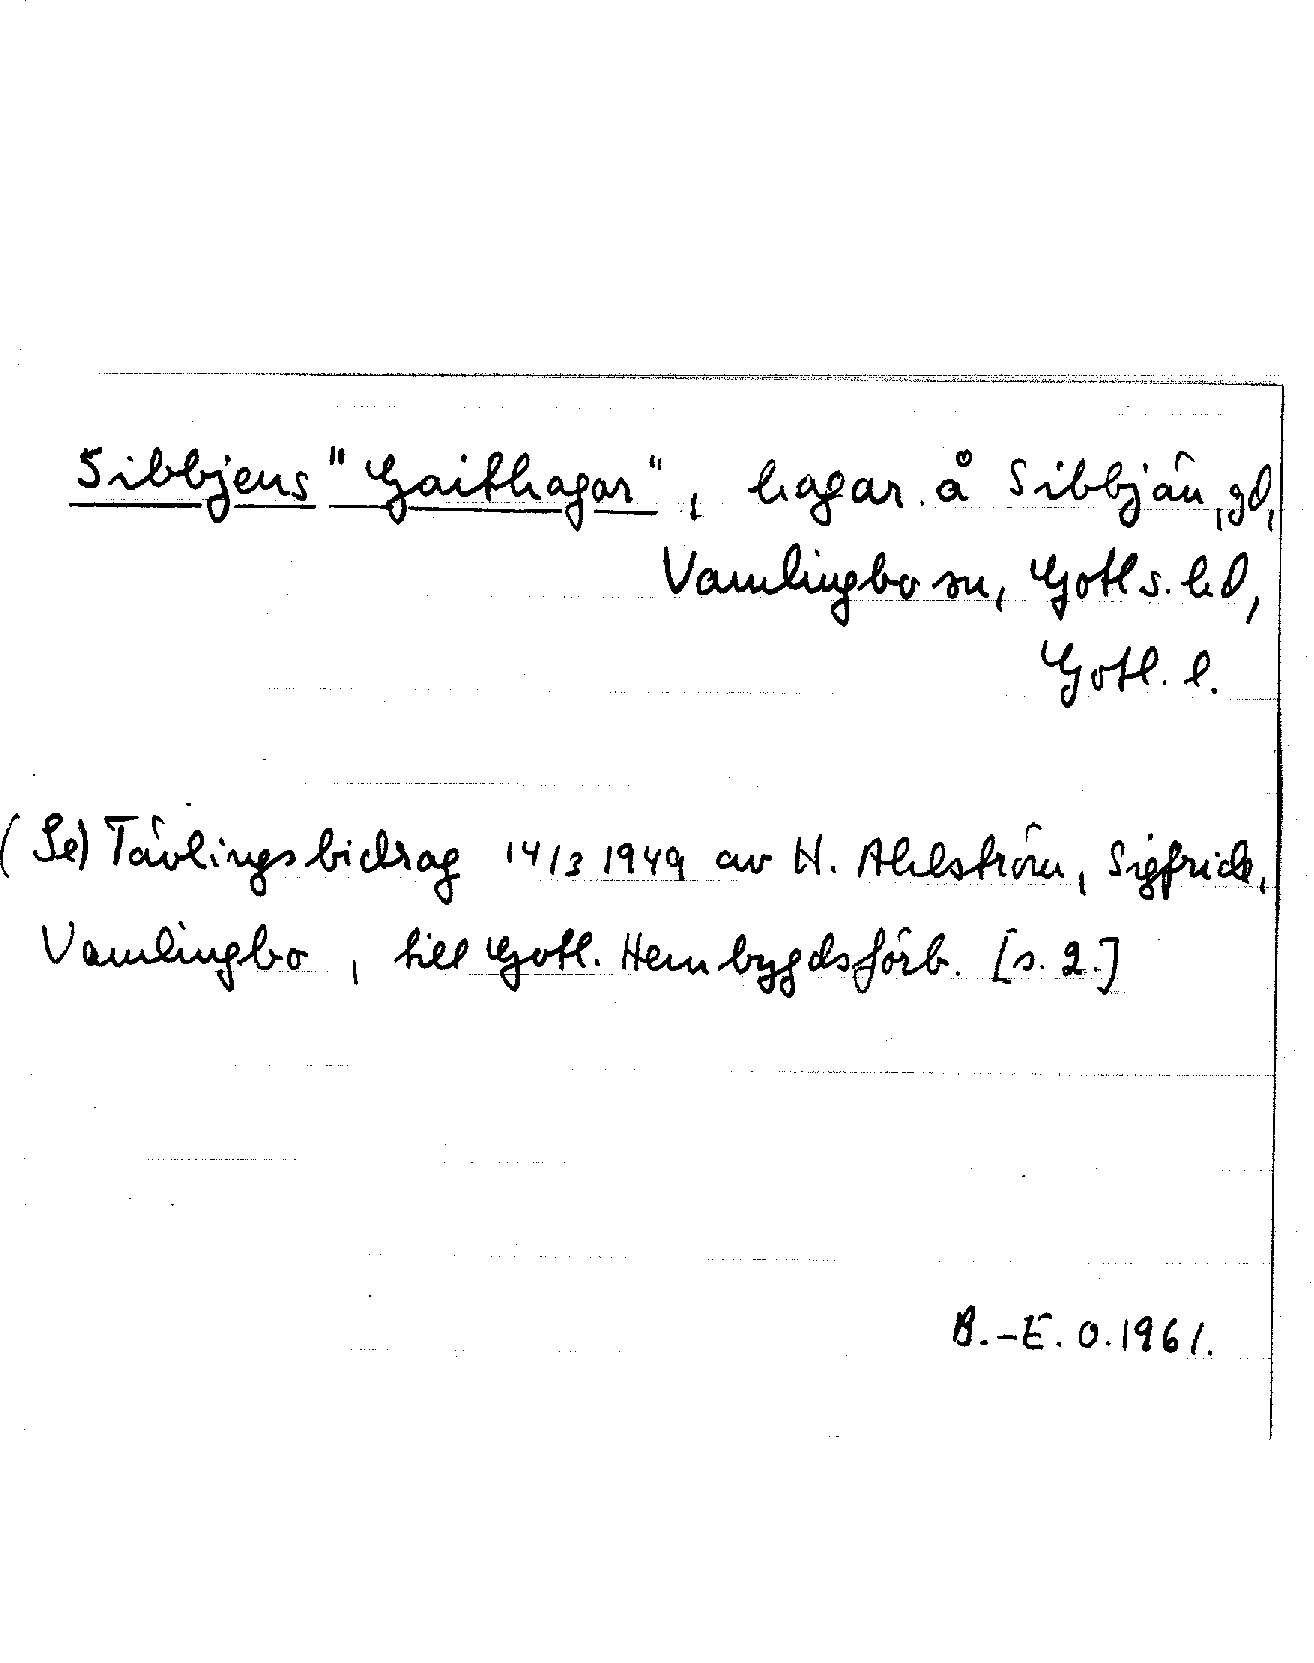 Sibbjens "Gaithagar", hagar å Sibbjän, gd,
Vamlingbo sn, Gotl s. hd,
Gotl. l.
(Se) Tävlingsbidrag 14/3 1949 av H. Ahlström, Sigfride,
Vamlingbo, till Gotl. Hembygdsförb. [s. 2.]
B.-E. O. 1961.